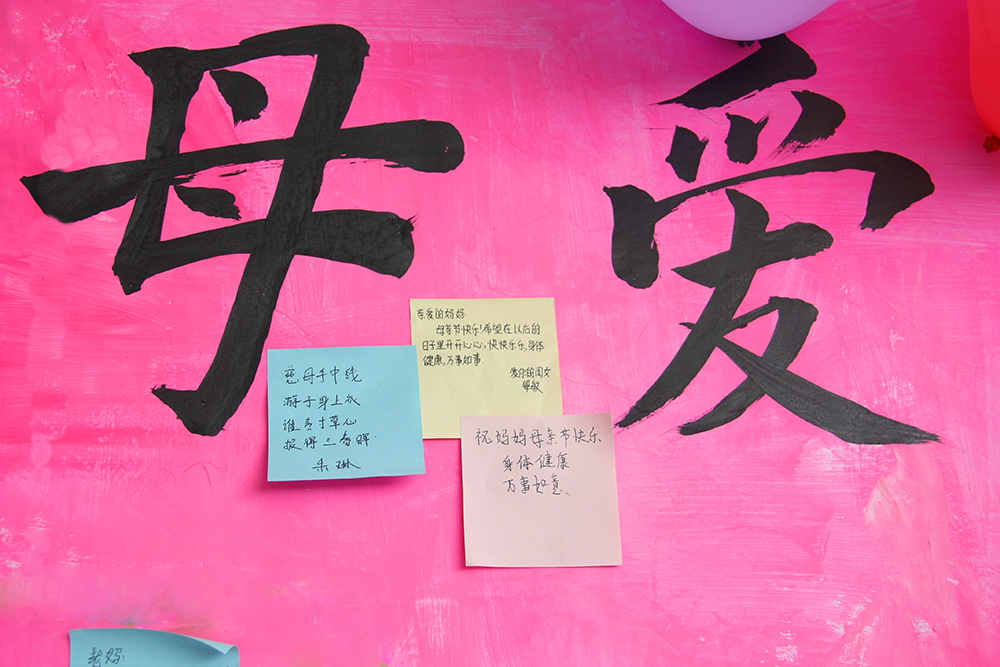 母爱
亲爱的妈妈:
母亲节快乐!希望在以后的
日子里开开心心,快快乐乐,身体
健康,万事如事.
爱你的闺女
慈母手中线
游子身上衣
谁言寸草心
报得三春晖.
朱琳
祝妈妈母亲节快乐
身体健康
万事如意、
老妈: